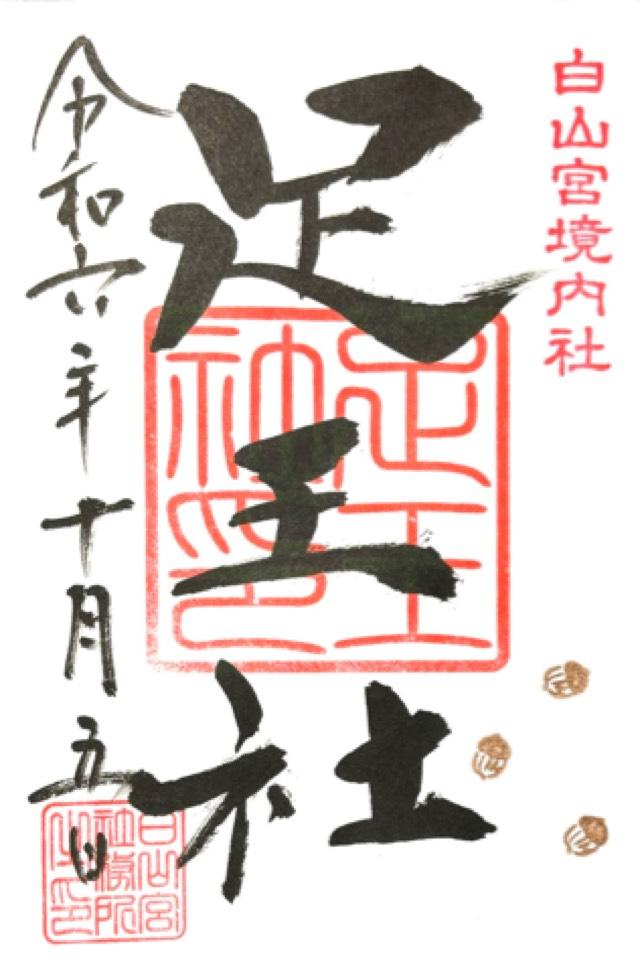 白山宮境内社
足王社
足王社印
令和六年十月五日
白山宮社務所之印